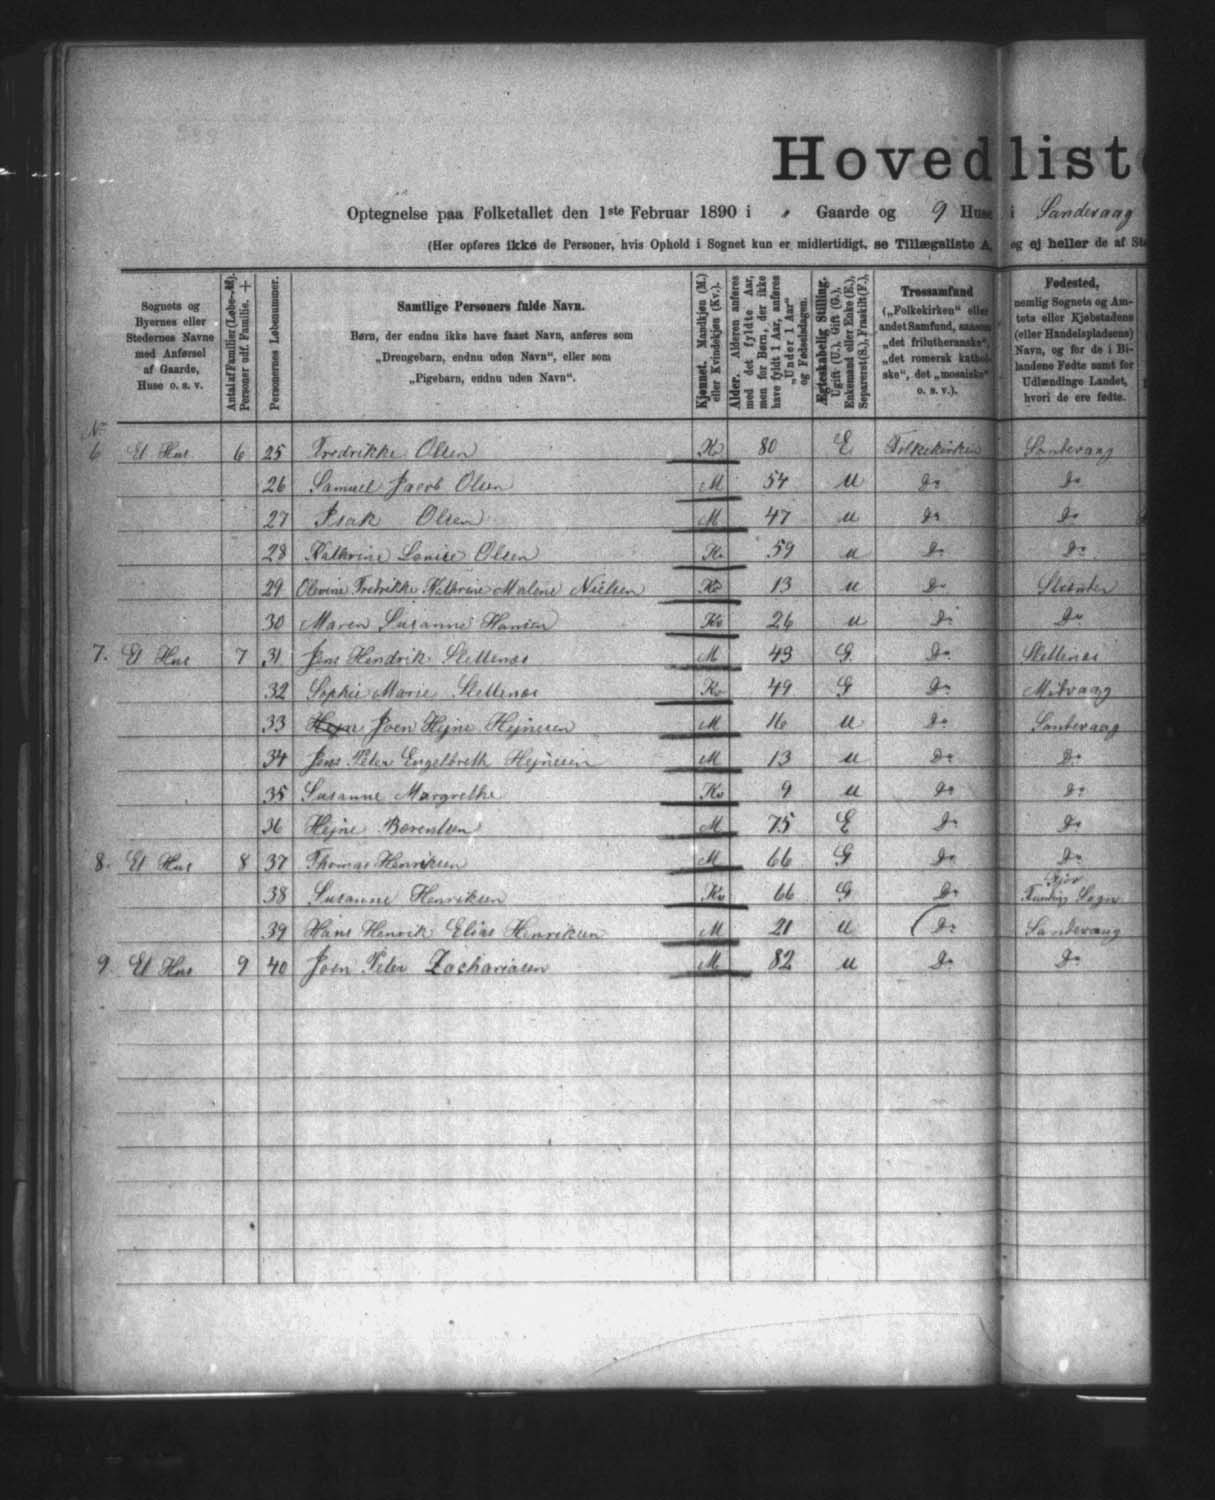 Hovedliste
Optegnelse paa Folketallet den 1ste Februar 1890 i " Gaarde og 9 Huse i Sandevaag
(Her opføres ikke de Personer, hvis Ophold i Sognet kun er midlertidigt, se Tillægsliste A, og ej heller de af
Sognets og Byernes eller Stedernes Navne med Anførsel af Gaarde, Huse o. s. v.
Antal af Familier (Løbe-№). Personer udf. Familie. +
Personernes Løbenummer.
Samtlige Personers fulde Navn.
Børn, der endnu ikke have faaet Navn, anføres som
„Drengebarn, endnu uden Navn“, eller som
„Pigebarn, endnu uden Navn“.
Kjønnet. Mandkjøn (M.) eller Kvindekjøn (Kv.).
Alder. Alderen anføres med det fyldte Aar, men for Børn, der ikke have fyldt 1 Aar, anføres „Under 1 Aar“ og Fødselsdagen.
Ægteskabelig Stilling. Ugift (U.), Gift (G.), Enkemand eller Enke (E.), Separeret (S.), Fraskilt (F.).
Trossamfund („Folkekirken“ eller andet Samfund, saasom „det frilutheranske“, „det romersk katholske“, det „mosaiske“ o. s. v.).
Fødested, nemlig Sognets og Amtets eller Kjøbstadens (eller Handelspladsens) Navn, og for de i Bilandene Fødte samt for Udlændinge Landet, hvori de ere fødte.
N
6 Et Hus 6 25 Fredrikke Olsen Kv 80 E Folkekirken Sandevaag
26 Samuel Jacob Olsen M 54 U Do Do
27 Isak Olsen M 47 u Do Do
28 Kathrine Lovise Olsen Kv 59 u Do Do
29 Olevine Fredrikke Kathrine Malene Nielsen Kv 13 u Do
30 Maren Susanne Hansen Kv 26 u Do Do
7. Et Hus 7 31 Jens Hendrik Slettenæs M 43 G Do Slettenæs
32 Sophie Marie Slettenæs Kv 49 G Do Midvaag
33 Joen Hejne Hejnesen M 16 u Do Sandevaag
34 Jens Peter Engelbreth Hejnesen M 13 u Do Do
35 Susanne Margrethe Kv 9 u Do Do
36 Hejne Berentsen M 75 E Do Do
8. Et Hus 8 37 Thomas Henriksen M 66 G Do Do
38 Susanne Henriksen Kv 66 G Do Sogn
39 Hans Henrik Elias Henriksen M 21 u Do Sandevaag
9. Et Hus 9 40 Joen Peter Zachariasen M 82 u Do Do